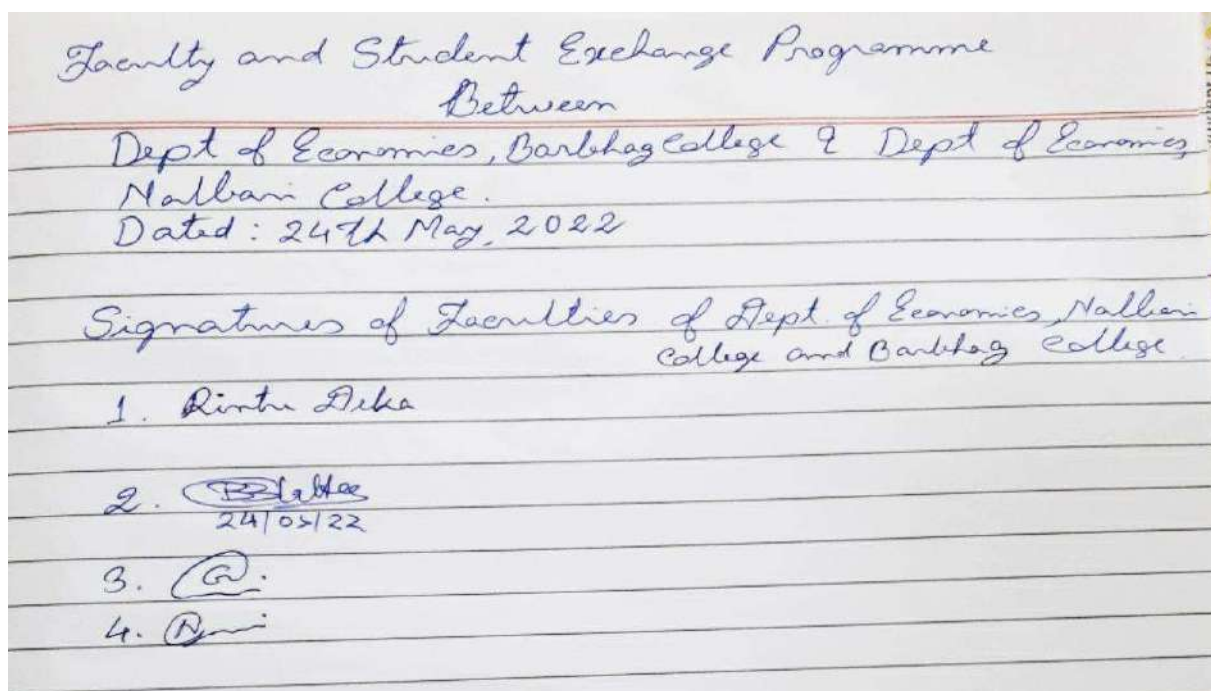 Faculty and Student Exchange Programme
Between
Dept of Economics, Barbhag College & Dept of Economics,
Nalbari College.
Dated: 24th May, 2022
Signatures of Faculties of Dept. of Economics, Nalbari
College and Barbhag College.
1. Rintu Deka
2.
24/05/22
3.
4.